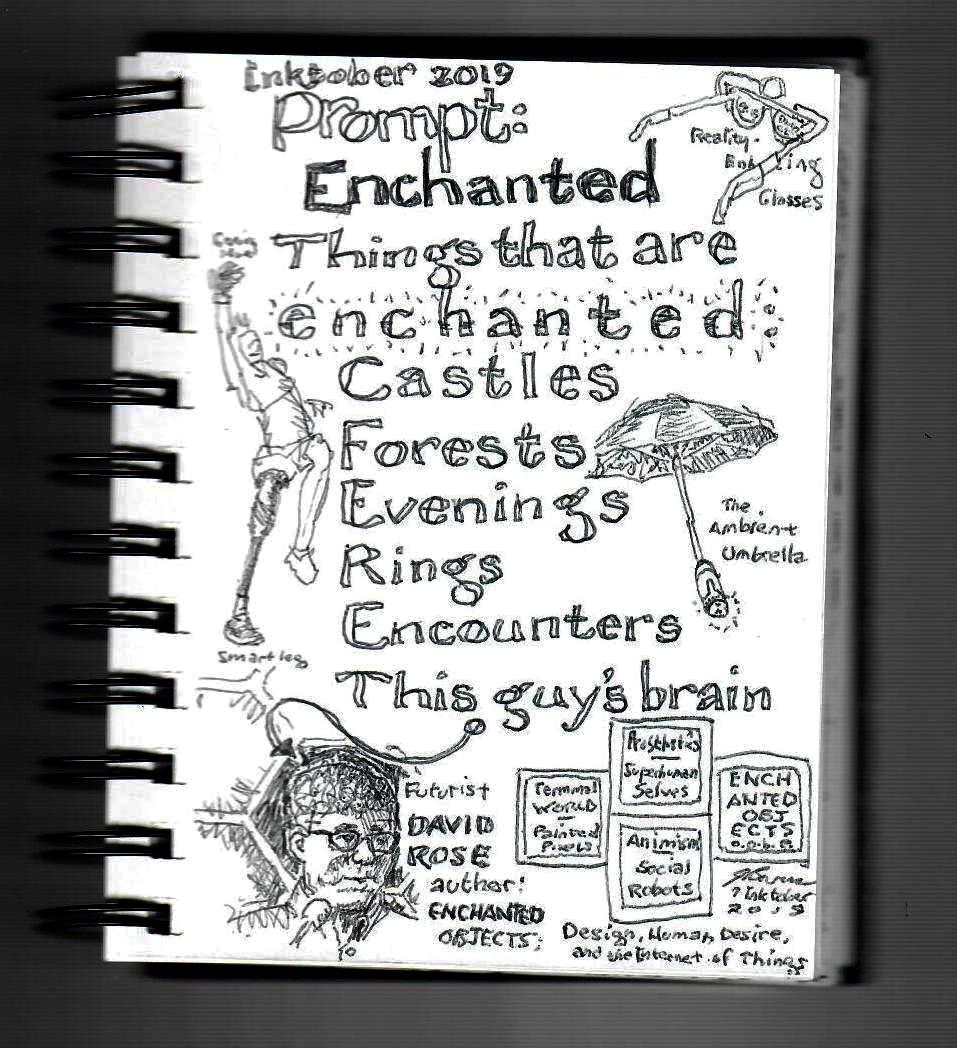 Inktober 2019
Prompt:
Enchanted
Reality-
Enh ing
Glasses
Things that are
enchanted:
Castles
Forests
Evenings
Rings
Encounters
This guy's brain
The
Ambient
Umbrella
Smart leg
Futurist
DAVID
ROSE
author:
ENCHANTED
OBJECTS:
Design, Human Desire,
and the Internet of Things
Terminal
WORLD
Painted
Pixels
Prosthetics
Superhuman
Selves
Animism
Social
Robots
ENCH
ANTED
OBJ
ECTS
7 Inktober
2019